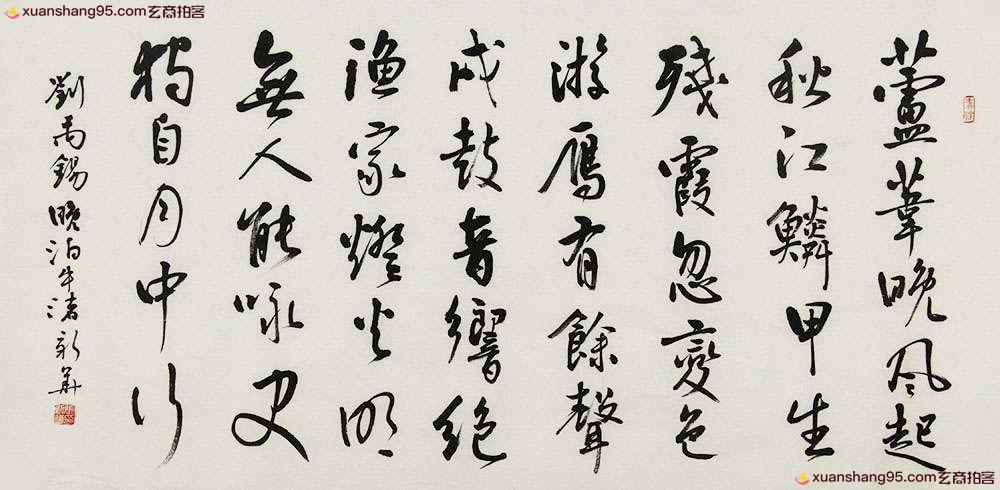 xuanshang95.com玄商拍客
xuanshang95.com玄商拍客
蘆葦晚风起
秋江鱗甲生
殘霞忽變色
游鴈有餘聲
戍鼓音響絕
漁家燈火明
無人能咏史
獨自月中行
劉禹錫晚泊牛渚新華
xuanshang95.com玄商拍客